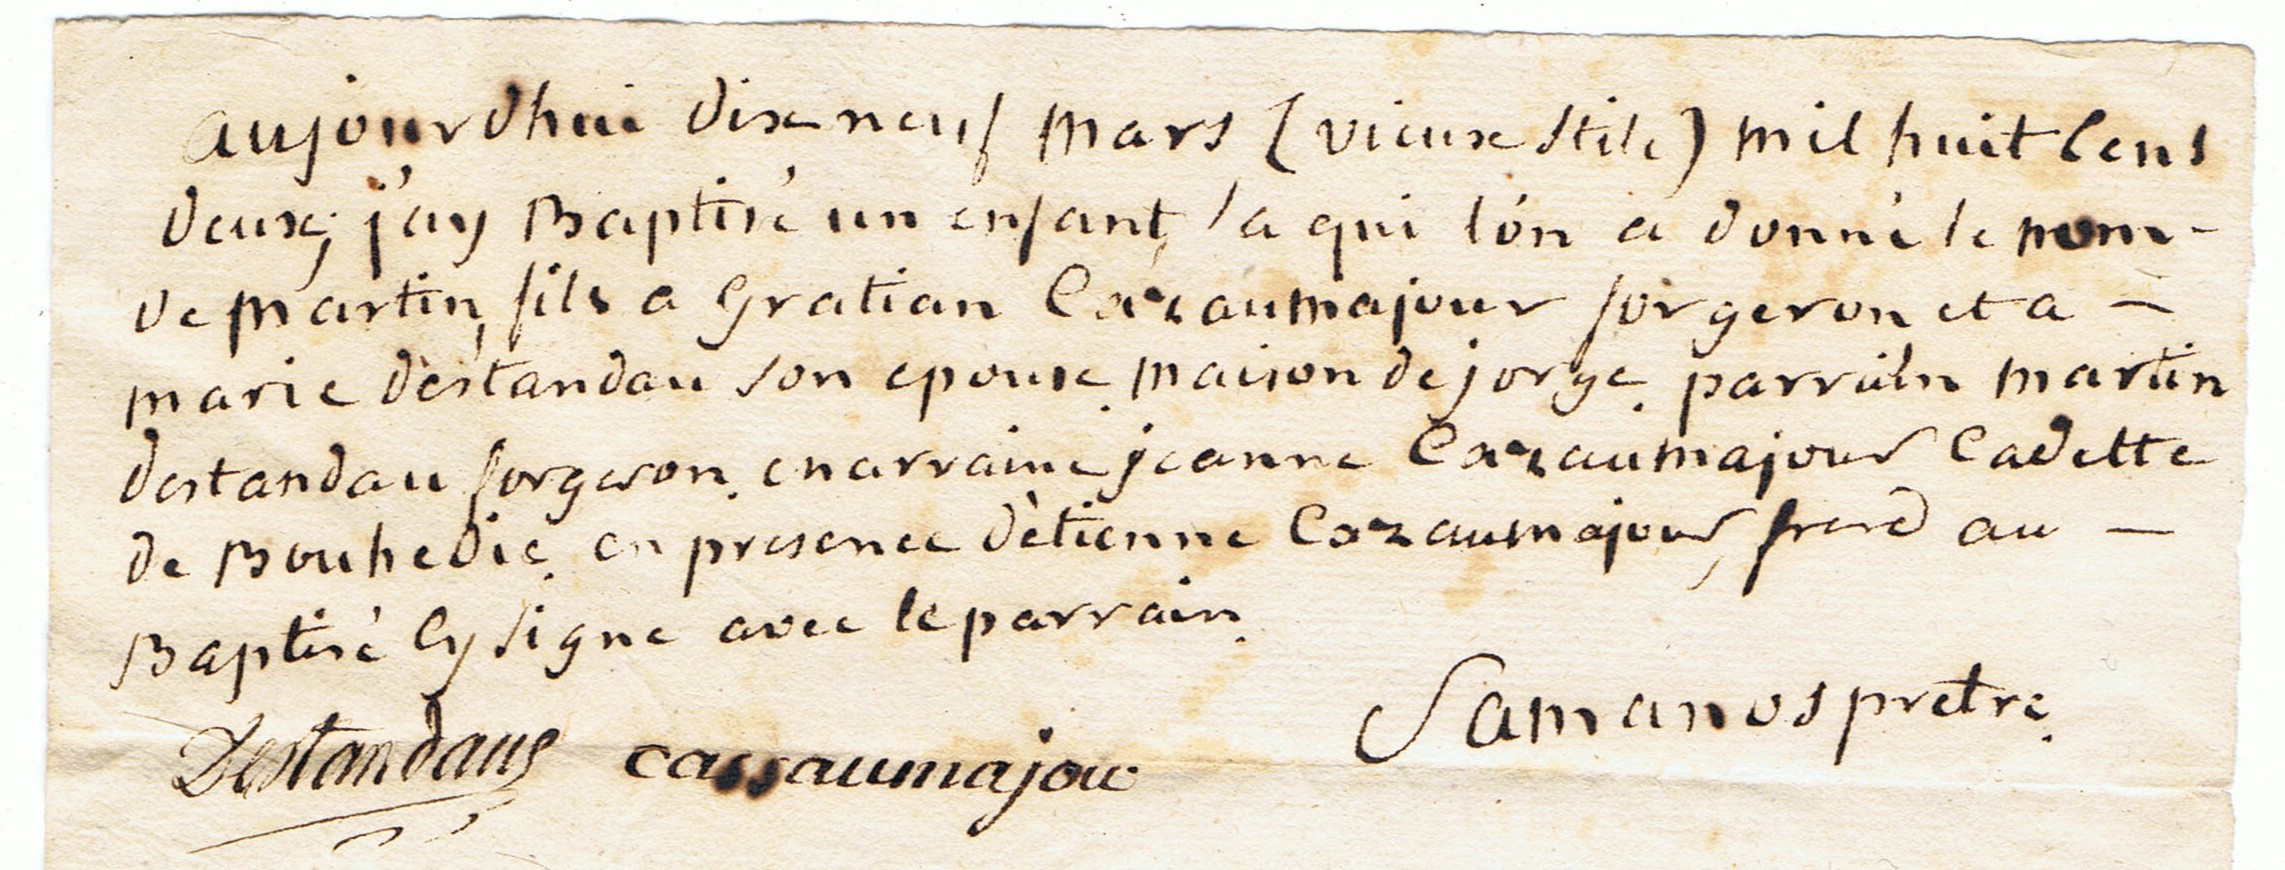 aujourdhui dixneuf mars (vieux stile) mil huit cens
deux; j'ay Baptisé un enfant, a qui l'on a donné le nom -
de martin, fils a gratian Cazaumajour forgeron et a -
marie déstandau son epouse. maison de jorge. parrain martin
destandau forgeron. marraine jeanne Cazaumajour Cadette
de Bouhedie. en presence d'étienne Cazaumajour, frere au -
Baptisé Cy signe avec le parrain.
Samanos pretre.
Destandaus cassaumajour